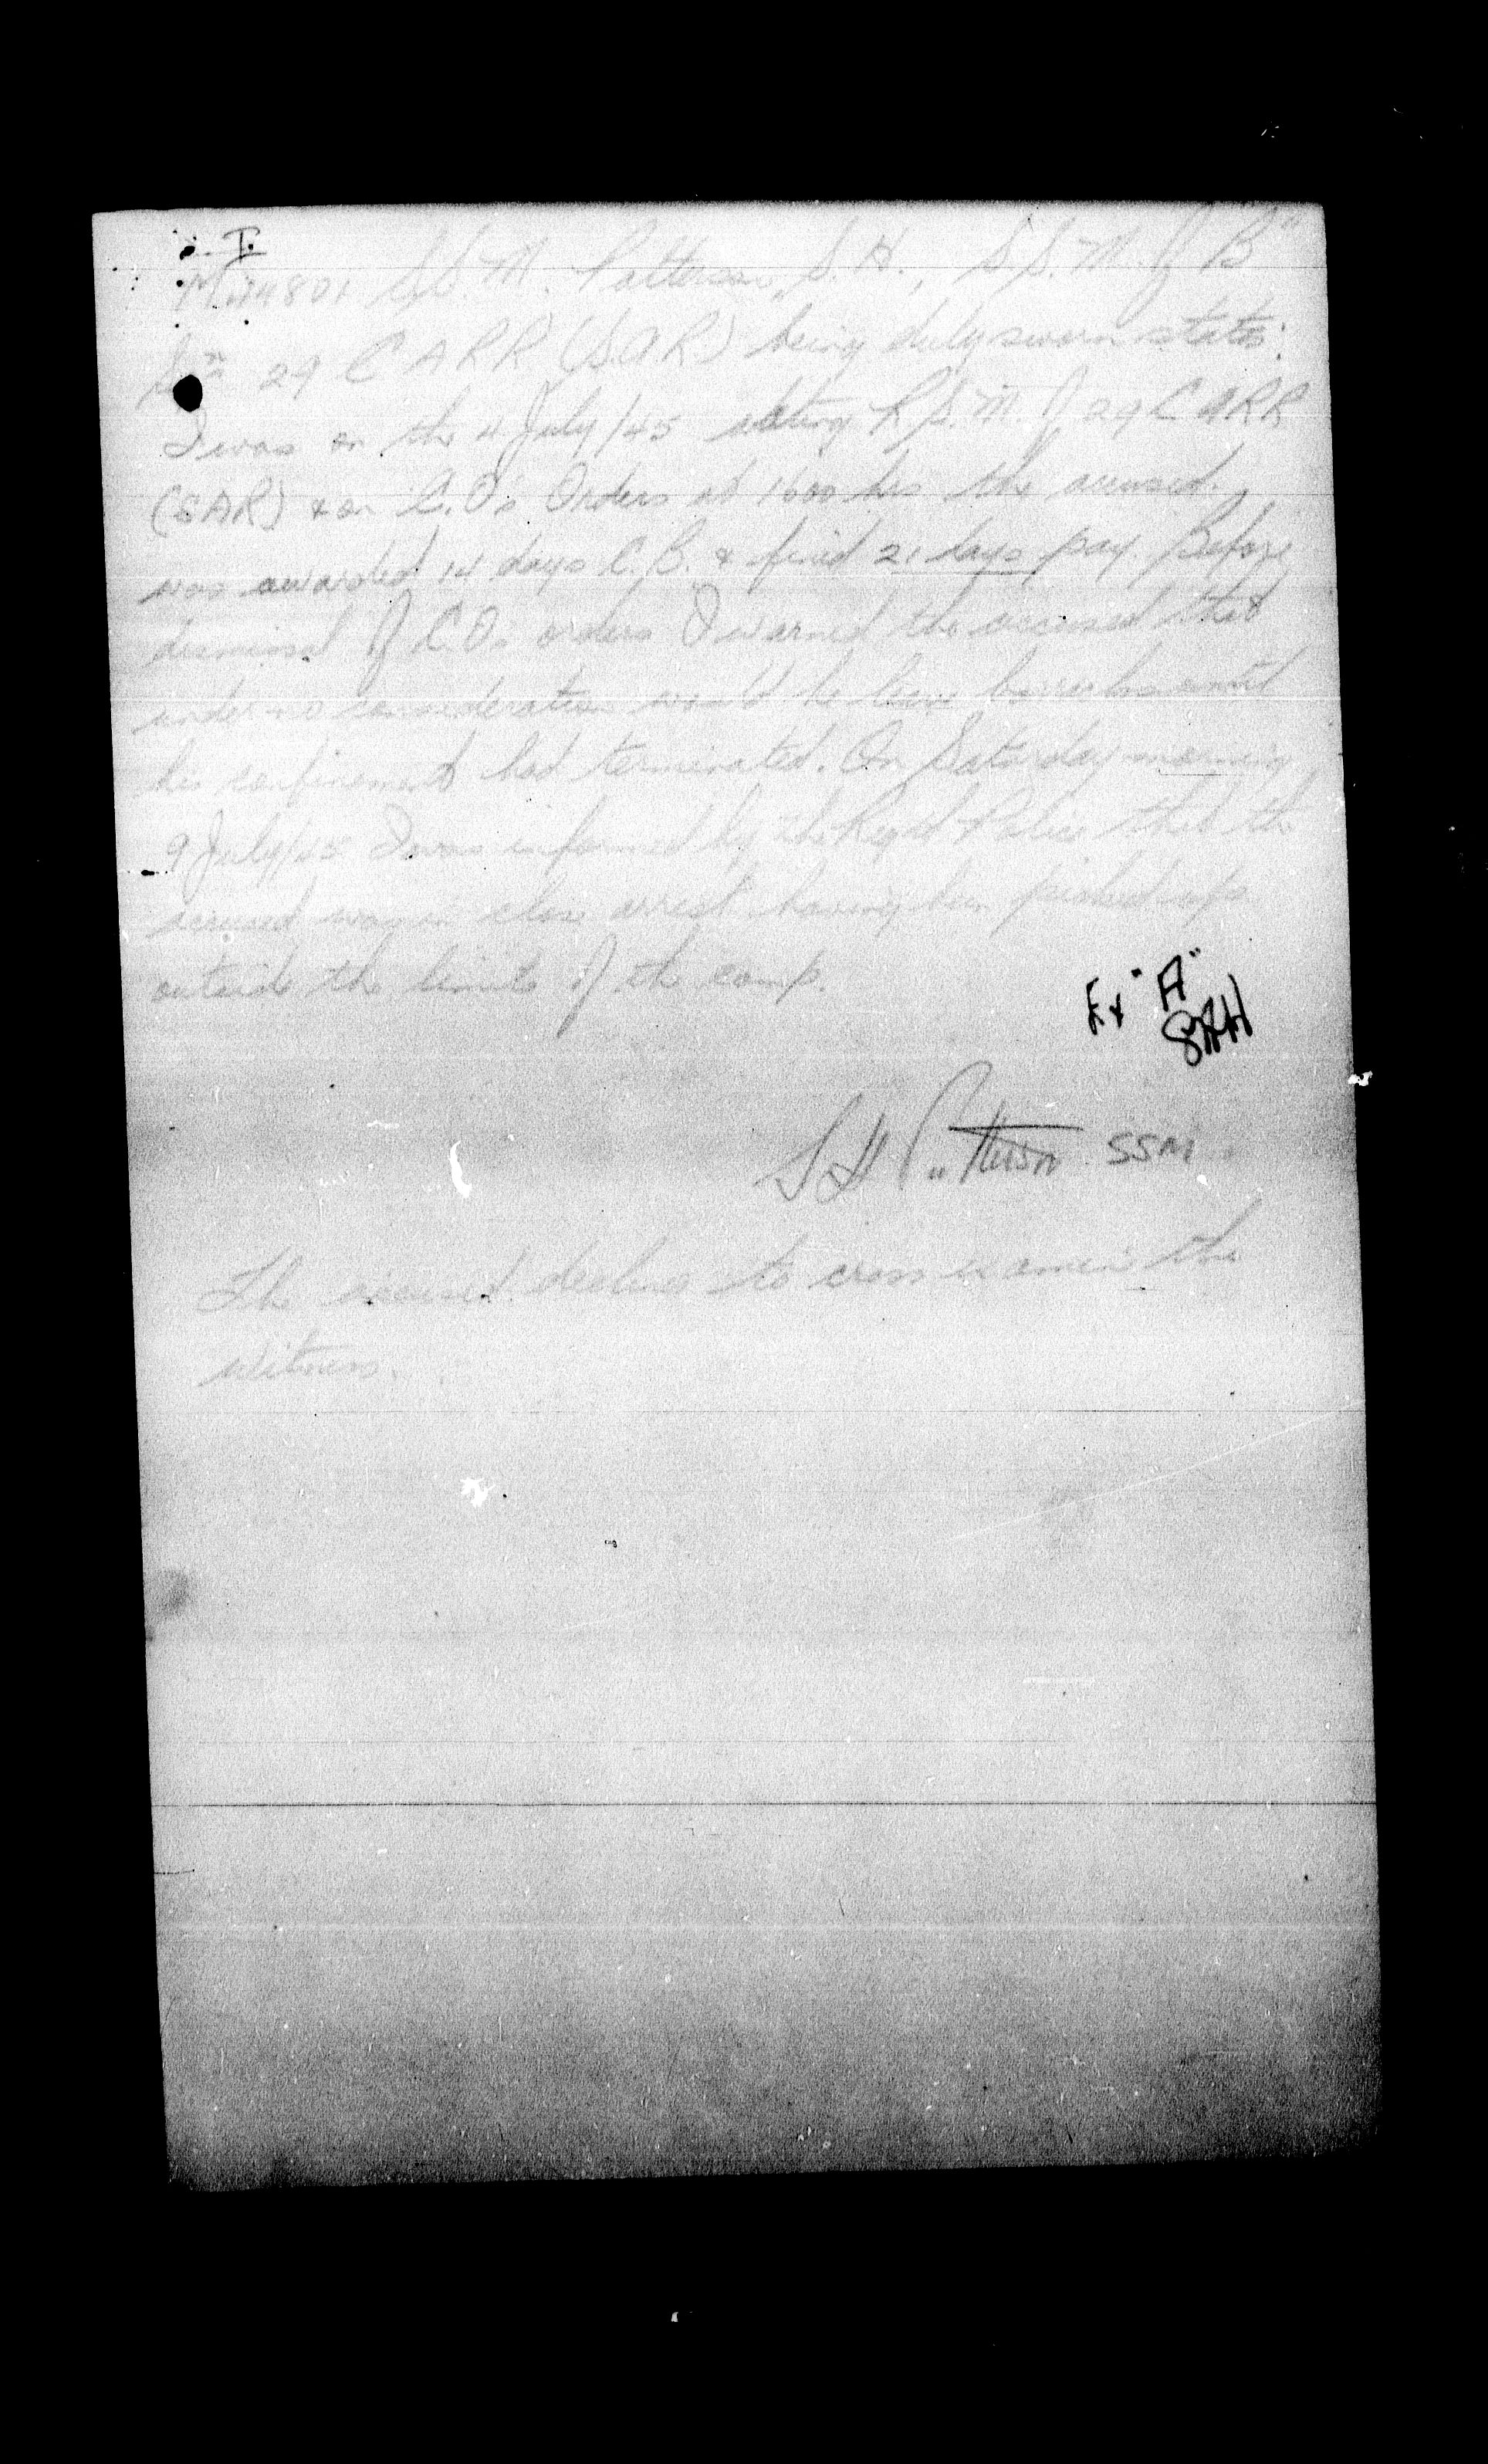 I.
S.S.M. Patterson, S.H., S.S.M. of "B"
Sqn 29 C A R R (S.A.R.) being duly sworn states:
I was on the 4 July/45 acting R.S.M. of 29 C ARR
(SAR) & on C.O's Orders at 1600 hrs the accused
was awarded 14 days C.B. & fined 21 days pay. Before
dismissal of C.O's orders I warned the accused that
under no consideration would he leave barracks until
his confinement had terminated. On Saturday morning
July/45 I was informed by the Reg'd Police that the
accused was in close arrest having been picked up
outside the limits of the camp.
Ex "A"
SH Patterson SSM
The accused declines to cross examine the
witness.